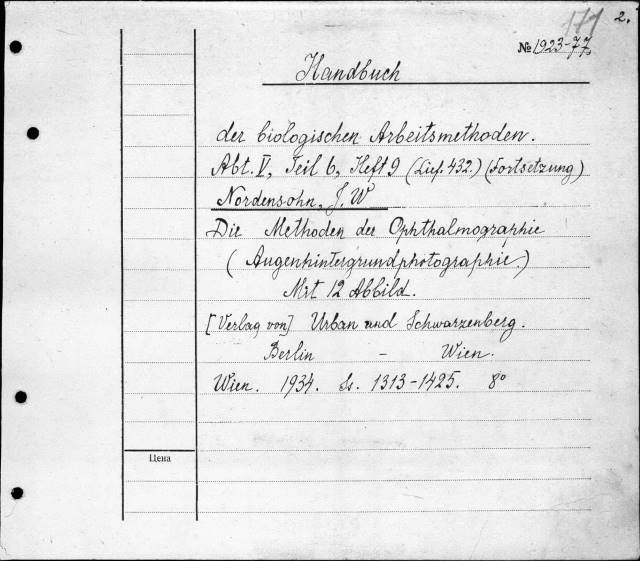 171
2.
№ 1923-77
Handbuch
der biologischen Arbeitsmethoden.
Abt. V, Teil 6, Heft 9 (Lief. 432.) (Fortsetzung)
Nordensohn, J. W
Die Methoden der Ophthalmographie
(Augenhintergrundphotographie.)
Mit 12 Abbild.
[Verlag von] Urban und Schwarzenberg.
Berlin - Wien.
Wien. 1934. Ss. 1313-1425. 8°
Цена